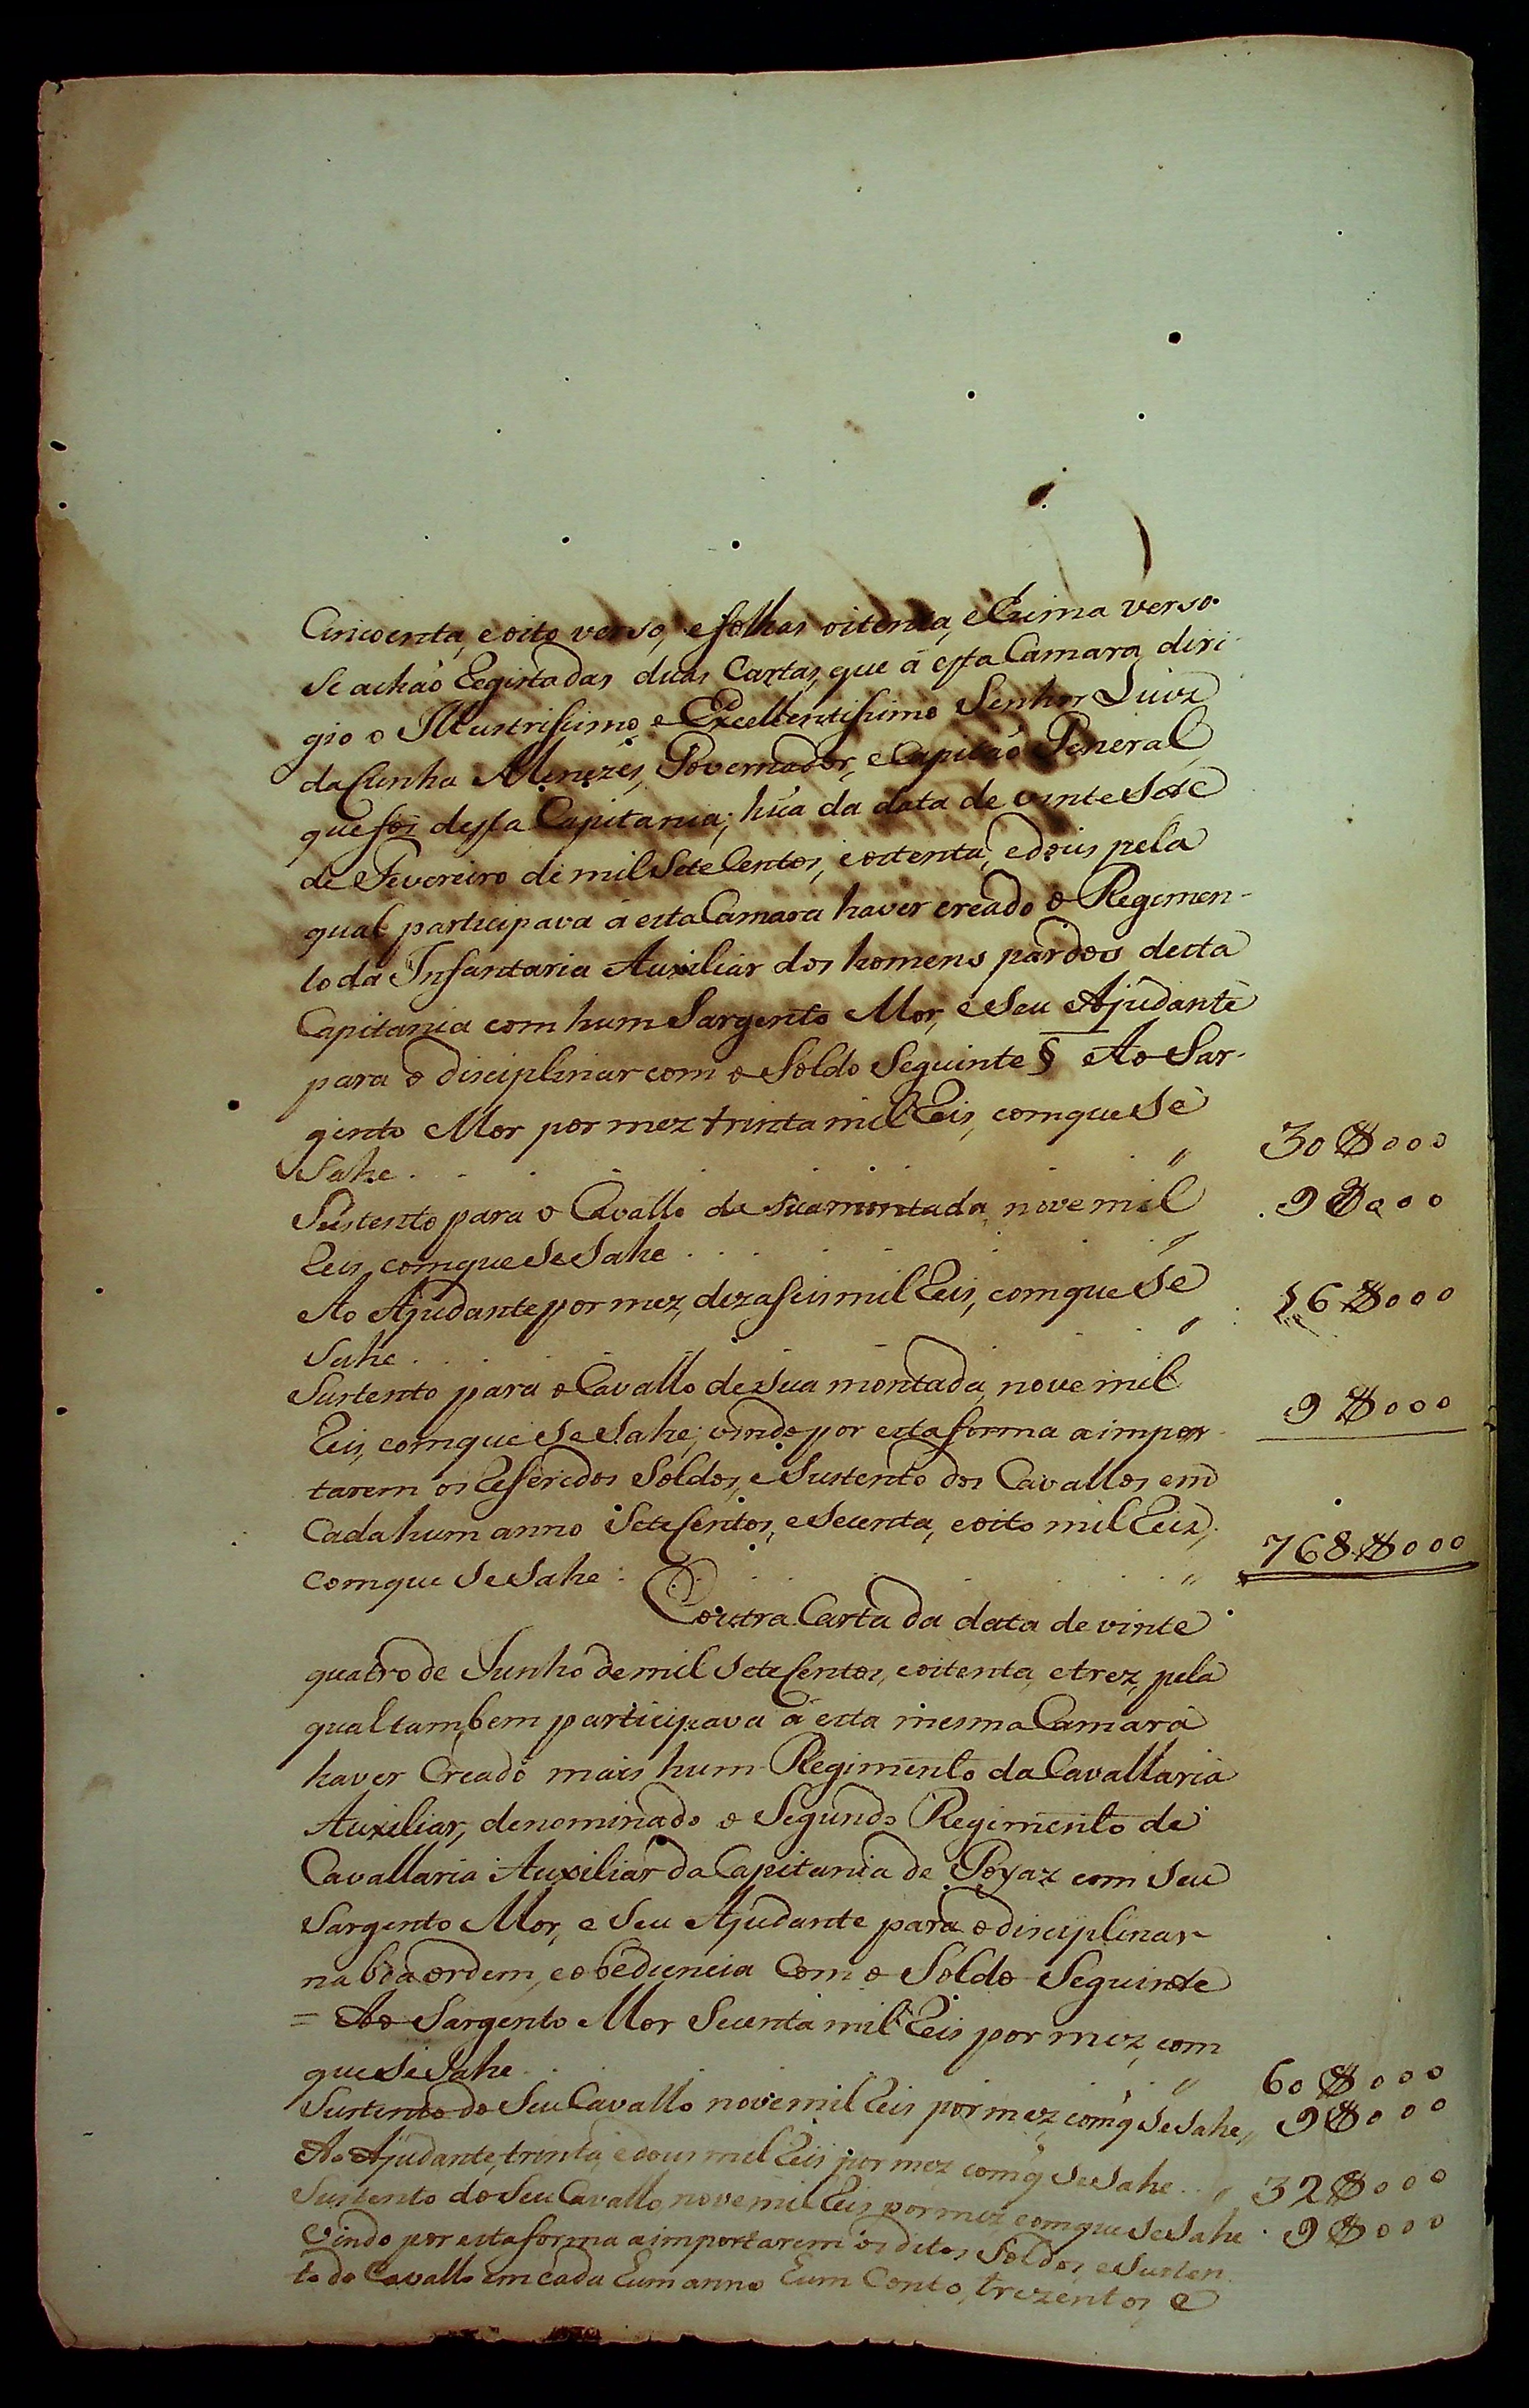 Cincoenta, e oito verso, e folhas oitenta, e Cima verso
se achaõ Registadas duas Cartas, que á esta Camara diri-
gio o Illustrissimo, e Excellentissimo Senhor Luiz
da Cunha Menezes, Governador, e Capitaõ General
que foi desta Capitania; húa da data de vinte sete
de Fevereiro de mil Sete Centos, e oitenta, e dois pela
qual participava á esta Camara haver creado o Regimen-
to da Infantaria Auxiliar dos homens pardos desta
Capitania com hum Sargento Mor, e Seu Ajudante
para o disciplinar com o Soldo Seguinte § Ao Sar-
gento Mor por mez trinta mil Reis, com que Se
Sahe . . . . . . . . " 30$000
Sustento para o Cavallo de sua montada, nove mil
Reis, com que Se Sahe . . . . . . " 9$000
Ao Ajudante por mez, dezaseis mil Reis, com que Se
Sahe . . . . . . . . " 16$000
Sustento para o Cavallo de Sua montada, nove mil
Reis, com que Se Sahe; vindo por esta forma a impor- 9$000
tarem os Referidos Soldos, e Sustento dos Cavallos em
Cada hum anno Sete Centos, e Secenta, e oito mil Reis,
com que Se Sahe : . . . . . . " 768$000
E outra Carta da data de vinte
quatro de Junho de mil Sete Centos, e oitenta, e trez, pela
qual tambem participava á esta mesma Camara
haver Creado mais hum Regimento da Cavallaria
Auxiliar, denominado o Segundo Regimento de
Cavallaria Auxiliar da Capitania de Goyaz com Seu
Sargento Mor, e Seu Ajudante para o disciplinar
na boa ordem, e obediencia Com o Soldo Seguinte
= Ao Sargento Mor Secenta mil Reis por mez, com
que Se Sahe . . . . . . " 60$000
Sustento do Seu Cavallo nove mil Reis por mez, com q̃ Se Sahe " 9$000
Ao Ajudante, trinta, e dous mil Reis por mez com q̃ Se Sahe . . " 32$000
Sustento do Seu Cavallo nove mil Reis por mez com que Se Sahe . 9$000
Vindo por esta forma a importarem os ditos Soldos, e Susten-
to do Cavallo em cada hum anno hum Conto, trezentos e